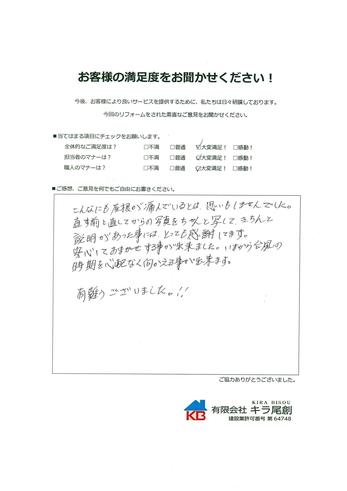 お客様の満足度をお聞かせください！
今後、お客様により良いサービスを提供するために、私たちは日々研鑽しております。
今回のリフォームをされた素直なご意見をお聞かせください。
■当てはまる項目にチェックをお願いします。
全体的なご満足度は？ □不満 □普通 ☑大変満足！ □感動！
担当者のマナーは？ □不満 □普通 ☑大変満足！ □感動！
職人のマナーは？ □不満 □普通 ☑大変満足！ □感動！
■ご感想、ご意見を何でもご自由にお書きください。
こんなにも屋根が痛んでいるとは、思いもしませんでした。
直す前と直してからの写真をちゃんと写して、きちんと
説明があった事には、とっても感謝してます。
安心しておまかせする事が出来ました。いまから台風の
時期を心配なく向かえる事が出来ます。
有難うございました。!!
ご協力ありがとうございました。
KIRA BISOU
KB 有限会社 キラ尾創
建設業許可番号 第64748